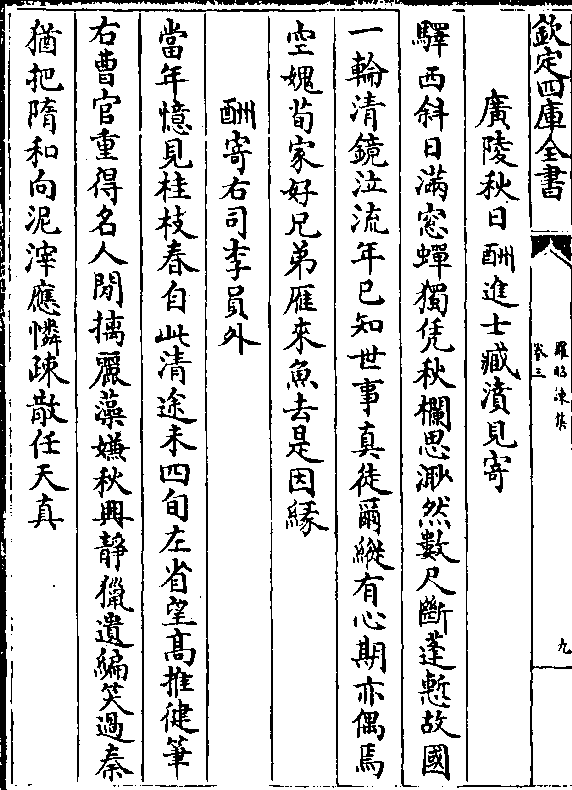 欽定四庫全書
羅昭諫集
卷三
九
廣陵秋日酬進士臧濆見寄
驛西斜日滿窓蟬獨凭秋欄思渺然數尺斷蓬慙故國
一輪清鏡泣流年已知世事真徒爾縱有心期亦偶焉
空媿荀家好兄弟雁來魚去是因縁
酬寄右司李員外
當年憶見桂枝春自此清途未四旬左省望髙推健筆
右曹官重得名人閒摛麗藻嫌秋興靜獵遺編笑過秦
猶把隋和向泥滓應憐疎散任天真